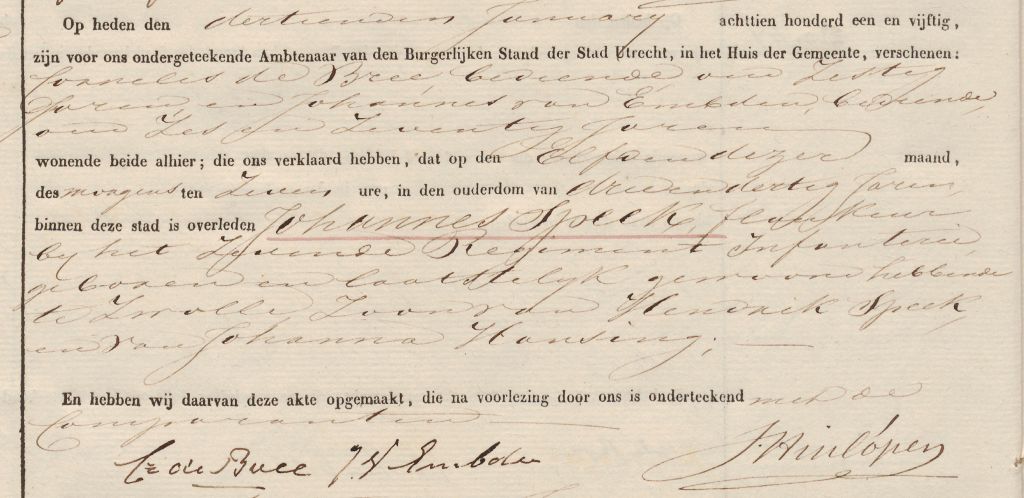 Op heden den dertienden January achttien honderd een en vijftig,
zijn voor ons ondergeteekende Ambtenaar van den Burgerlijken Stand der Stad Utrecht, in het Huis der Gemeente, verschenen:
Cornelis de Bree bediende oud Zestig
Jaren, en Johannes van Embden, bediende,
oud Zes en Zeventig Jaren
wonende beide alhier; die ons verklaard hebben, dat op den Elfden dezer maand,
des morgens ten Zeven ure, in den ouderdom van drie en dertig Jaren,
binnen deze stad is overleden Johannes Speek, flankeur
by het Zevende Regiment Infanterie
geboren en laatstelyk gewoond hebbende
te Zwolle, Zoon van Hendrik Speek
en van Johanna Hansing;
En hebben wij daarvan deze akte opgemaakt, die na voorlezing door ons is onderteekend met de
Comparanten
C. de Bree J V Embde J Hinlópen